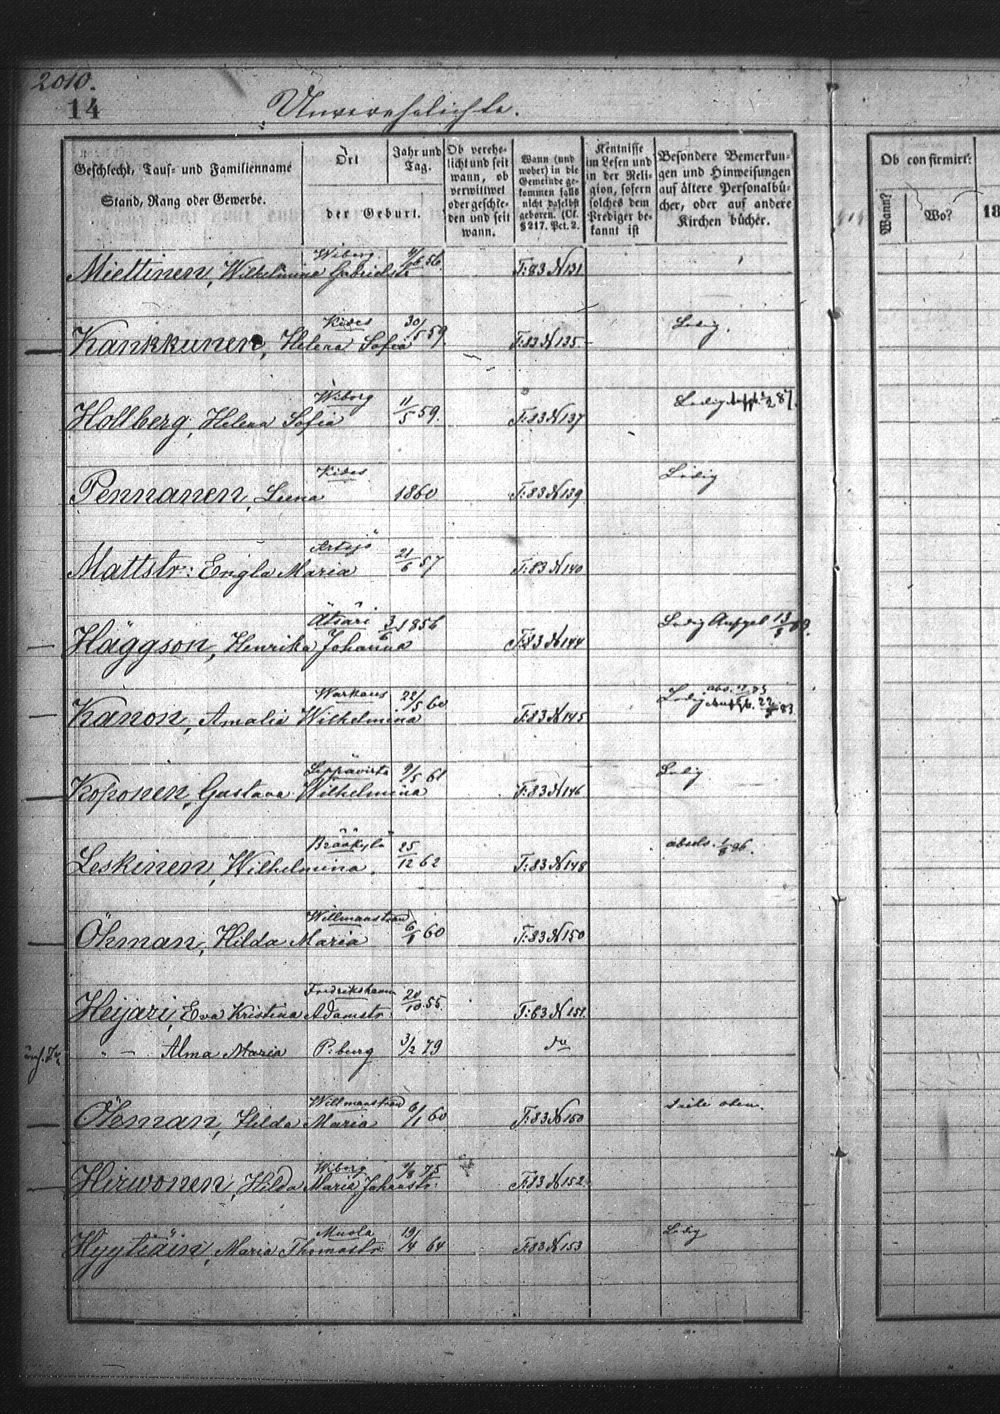 2010.
14
Unverehelichte.
Geschlecht, Tauf- und Familienname
Stand, Rang oder Gewerbe.
Ort
der Geburt.
Jahr und
Tag.
Ob verehe-
licht und seit
wann, ob
verwittwet
oder geschie-
den und seit
wann.
Wann (und
woher) in die
Gemeinde ge-
kommen falls
nicht daselbst
geboren. (Cf.
§ 217. Pct. 2.
Kentnisse
im Lesen und
in der Reli-
gion, sofern
solches dem
Prediger be-
kannt ist
Besondere Bemerkun-
gen und Hinweisungen
auf ältere Personalbü-
cher, oder auf andere
Kirchen bücher.
Ob confirmirt:
Wann?
Wo?
18
Miettinen, Wilhelmina Gabrielstr Wiborg 56 F: 83 N 131
Kankkunen, Helena Sofia Kides 30/5 59 F: 83 N 135 Ledig.
Hollberg, Helena Sofia Wiborg 11/5 59. F: 83 N 137 Ledig 87.
Pennanen, Leena Kides 1860 F: 83 N 139 Ledig
Mattstr: Engla Maria Artsjö 21/6 57 F: 83 N 140
Häggson, Henrika Johanna Ätsäri 3/6 1856 F: 83 N 144 Ledig Aufgeb 13/8
Kanon, Amalia Wilhelmina Warkaus 22/5 60 F: 83 N 145 Ledig 83.
Koponen, Gustava Wilhelmina Leppävirta 9/5 61 F: 83 N 146 Ledig
Leskinen, Wilhelmina. Brääkylä 25/12 62 F: 83 N 148 absolv. 1/8 86.
Öhman, Hilda Maria Willmanstrand 6/1 60 F: 83 N 150
Heijari, Eva Kristina Adamstr Fredrikshamn 20/10 55. F: 83 N 151.
" — Alma Maria P:burg 3/2 79 do
Öhman, Hilda Maria Willmanstrand 6/1 60 F: 83 N 150 siehe oben.
Hirwonen, Hilda Maria Johanstr: Wiborg 9/8 75 F: 83 N 152
Hyytiäin, Maria Thomastr Muola 19/4 64 F: 83 N 153 Ledig